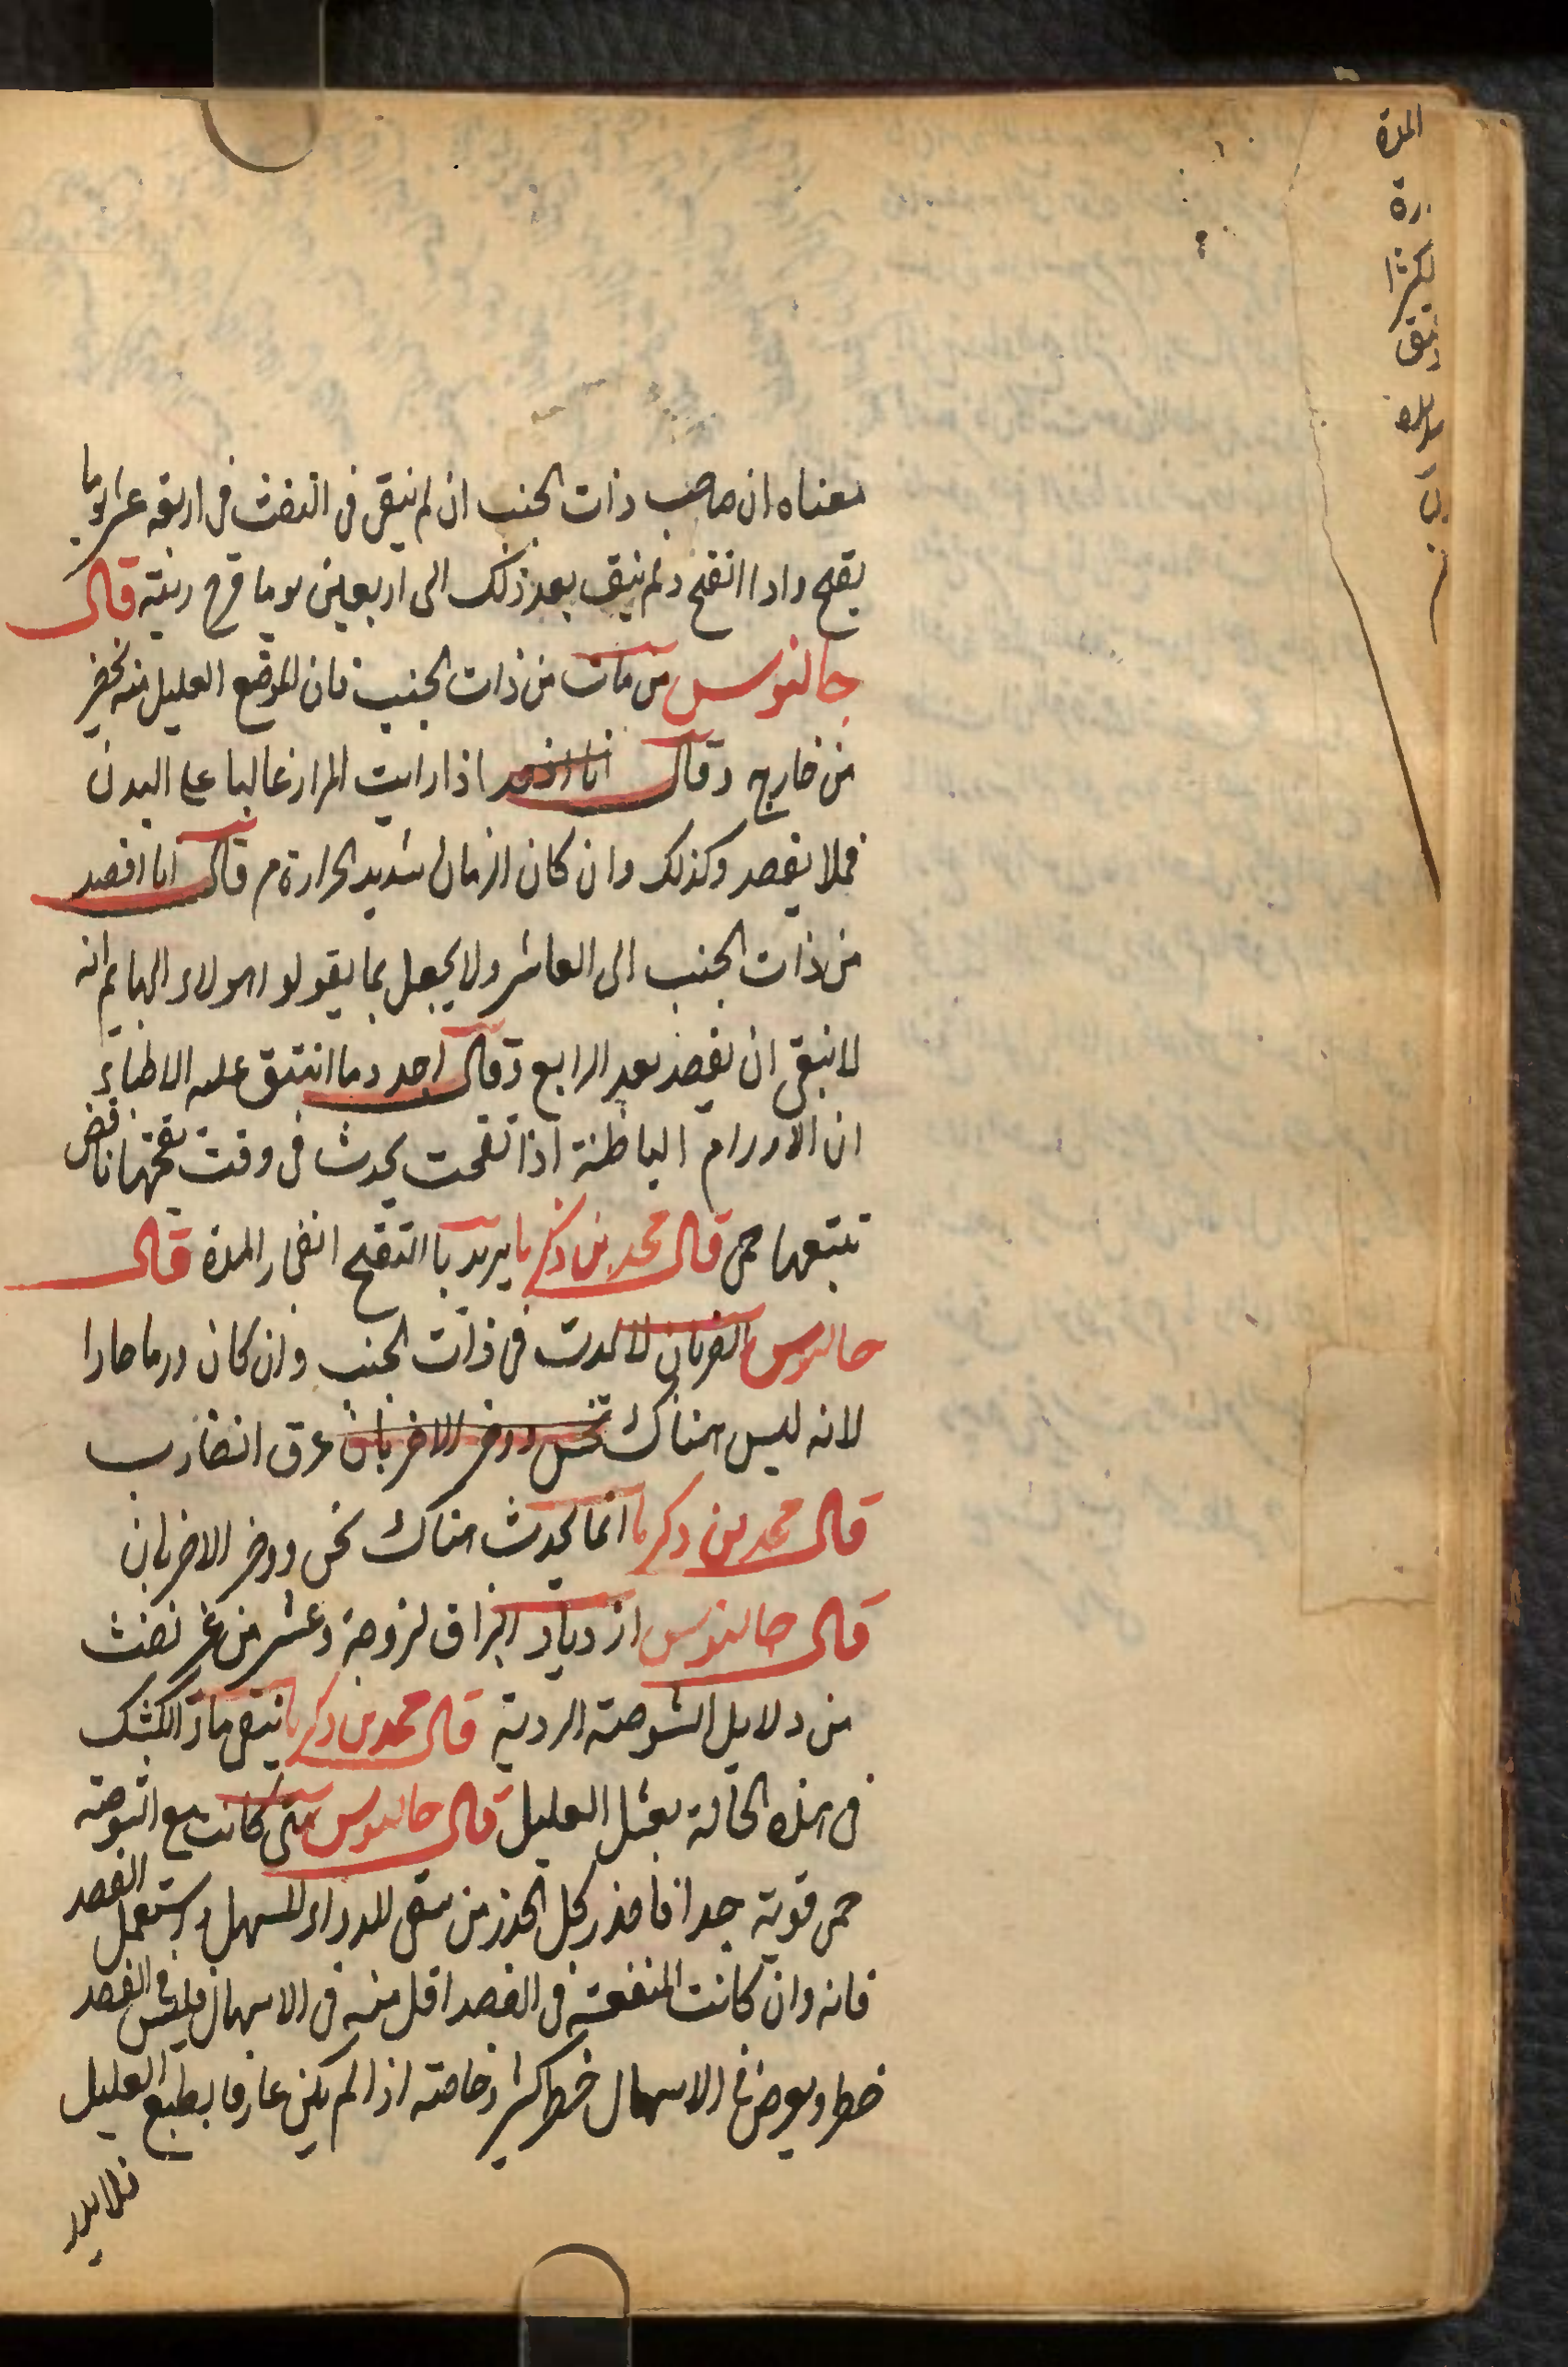 معناه ان صاحب ذات الجنب ان لم ينقى فى النفث فى اربعة عشر يوما
يقيح واذا انقيح ولم ينق بعد ذلك الى اربعين يوما قرح ريته قال
جالينوس من مات من ذات الجنب فان الموضع العليل منه يخضر
من خارج وقال انا افصد اذا رايت المرار غالبا على البدن
فلا يفصد وكذلك وان كان الزمان شديد الحرارة م قال انا افصد
من ذات الجنب الى العاشر ولا يجعل بما يقولو اهولاء البهايم انه
لا ينبغى ان يفصد بعد الرابع وقال اجد وما اتفق عليه الاطباء
ان الاورام الباطنة اذا تقيحت يحدث فى وقت تقيحها نافض
تتبعها حمى قال محمد بن زكريا يريد با التقيح انفجار المدة قال
جالينوس الضربان لا يحدث فى ذات الجنب وان كان ورما حارا
لانه ليس هناك نخس ووخز الا ضربان عرق الضارب
قال محمد بن زكريا انما يحدث هناك نخس ووخز الا ضربان
قال جالينوس ازدياد البزاق لزوجة وعسر من غير نفث
من دلايل الشوصة الردية قال محمد بن زكريا ينبغى ماء الكشك
فى هذه الحالة يقتل العليل قال جالينوس متى كانت مع الشوصة
حمى قوية جدا فاحذر كل الحذر من سقى الدواء المسهل واستعمل الفصد
فانه وان كانت المنفعة فى الفصد اقل منه فى الاسهال فليس فى الفصد
خطر ويعرض فى الاسهال خطر كثير وخاصته اذا لم يكن عارفا بطبع العليل
فلا يدر
المدة